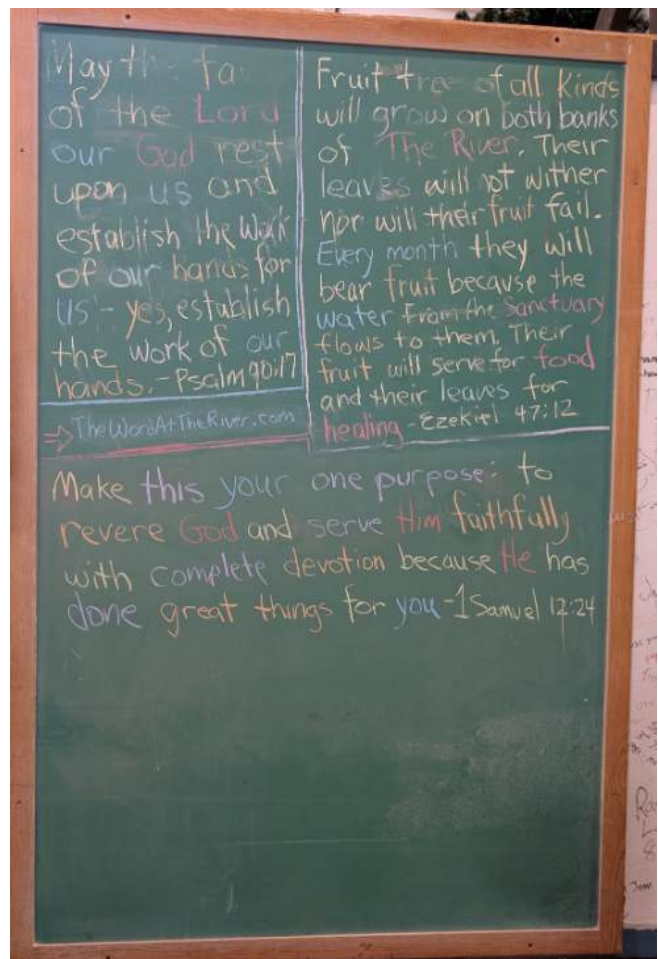 May the fa
of the Lord
our God rest
upon us and
establish the work
of our hands for
us - yes, establish
the work of our
hands. - Psalm 90:17
TheWordAtTheRiver.com
Fruit tre of all kinds
will grow on both banks
of The River. Their
leaves will not wither
nor will their fruit fail.
Every month they will
bear fruit because the
water From the Sanctuary
flows to them. Their
fruit will serve for food
and their leaves for
healing - Ezekiel 47:12
Make this your one purpose: to
revere God and serve Him faithfully
with complete devotion because He has
done great things for you - 1 Samuel 12:24